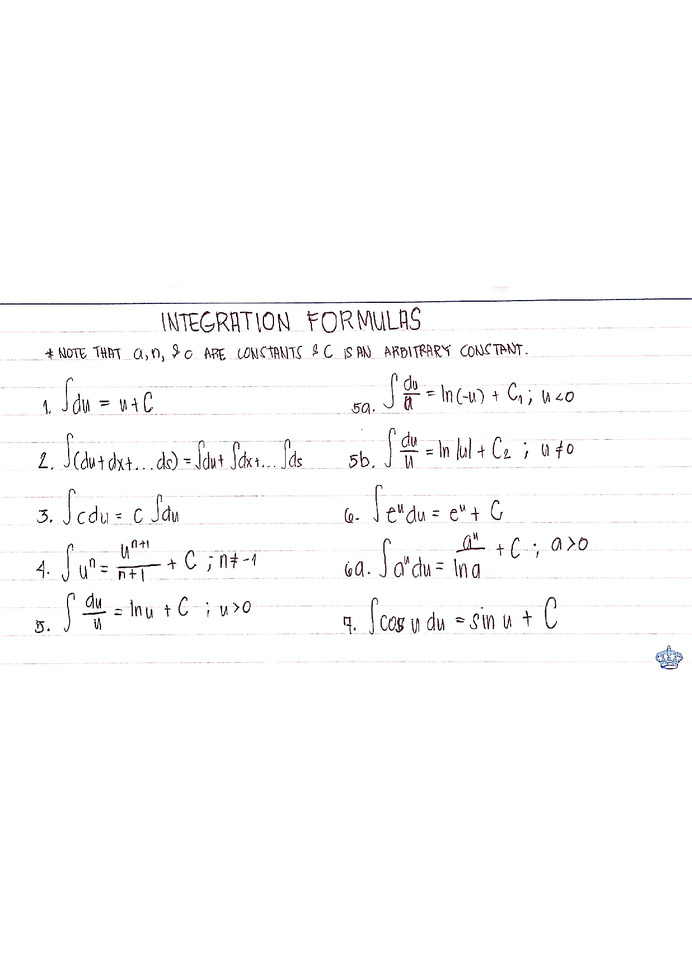 INTEGRATION FORMULAS
* NOTE THAT a, n, & c ARE CONSTANTS & C IS AN ARBITRARY CONSTANT.
1. ∫du = u + C
2. ∫(du + dx + ... ds) = ∫du + ∫dx + ... ∫ds
3. ∫c du = c ∫du
4. ∫uⁿ = uⁿ⁺¹/n+1 + C ; n ≠ -1
5. ∫ du/u = ln u + C ; u > 0
5a. ∫ du/u = ln(-u) + C₁ ; u < 0
5b. ∫ du/u = ln |u| + C₂ ; u ≠ 0
6. ∫eᵘ du = eᵘ + C
6a. ∫aᵘ du = aᵘ/ln a + C ; a > 0
7. ∫cos u du = sin u + C